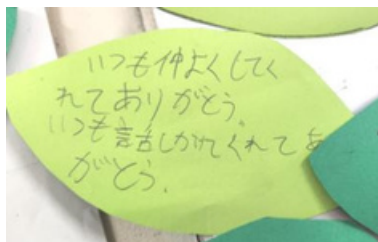 いつも仲よくしてく
れてありがとう。
いつも話しかけてくれてあ
がとう。